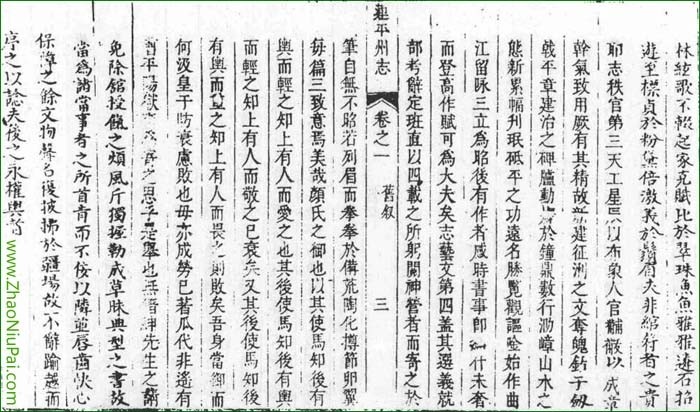 林絃歌不輟起家克賦比於翠珠魚魚雅雅遊石招
遊至樸貞於粉黛倍激義於鬚眉夫非綰行者之責
耶志秩官第三天工星辰以布象人官黼黻以成章
幹氣致用厥有其精故新建征洌之文奪魄釓于
戟平章建治之碑臚動於鐘鼎數行泐嶂山水之
態新累幅刋珉砥平之功遠名勝覽觀謳唫始作曲
江留咏三立為昭後有作者感時書事即什未奏
而登高作賦可為大夫矣志藝文第四蓋其選義就
部考辭定班直以四載之所躬關神營者而寄之於
連平州志 卷之一 舊叙 三
筆自無不昭若列眉而拳拳於傳荒陶化摶節卵翼
每篇三致意焉美哉顏氏之御也以其使馬知後有
輿而輕之知上有人而愛之也其後使馬知後有輿
而輕之知上有人而敬之已衰矣又其後使馬知後
有輿而重之知上有人而畏之則敗矣吾身當御而
何汲皇于防衰慮敗也毋亦成勞已著瓜代非遙有
平陽之思乎是舉也無晉紳先生之請
免除舘授餼之煩風斤獨握勒成草昧典型之書故
當為諸當事者之所首肯而不佞以隣壺唇齒快心
保障之餘文物聲名復披拂於疆場故不辭踰越而
序之以諗夫後之永權輿者
www.ZhaoNiuPai.com